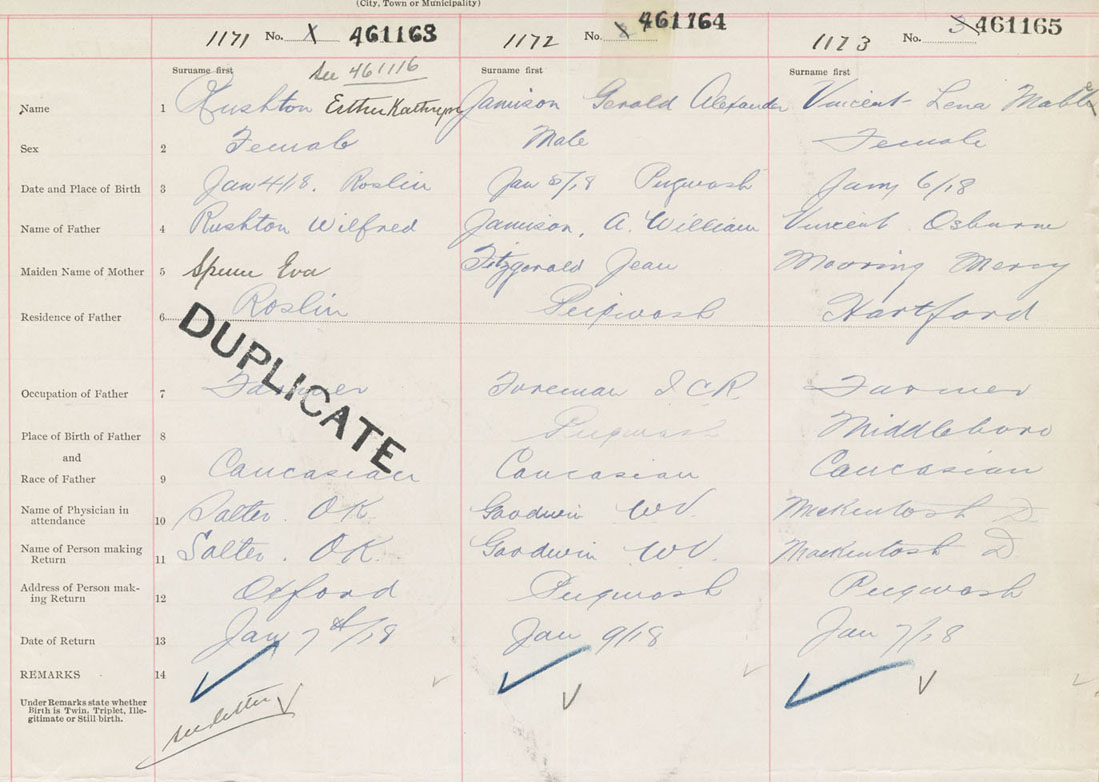 (City, Town or Municipality)
1171 No. X 461163 1172 No. 461164 1173 No. 3 461165
See 461116
Surname first Surname first Surname first
Name 1 Rushton Esther Kathryn Jamison Gerald Alexander Vincent Lena Mable
Sex 2 Female Male Female
Date and Place of Birth 3 Jan 4/18. Roslin Jan 5/18 Pugwash Jany 6/18
Name of Father 4 Rushton Wilfred Jamison, A. William Vincent Osburne
Maiden Name of Mother 5 Eva Fitzgerald Jean Mooring Mercy
Residence of Father 6 Roslin Pugwash Hartford
DUPLICATE
Occupation of Father 7 Farmer Foreman I C R Farmer
Place of Birth of Father 8 Pugwash Middleboro
and
Race of Father 9 Caucasian Caucasian Caucasian
Name of Physician in
attendance 10 Salter. OK Goodwin WV McKintosh D.
Name of Person making
Return 11 Salter. OK. Goodwin WV. Mackintosh D.
Address of Person mak-
ing Return 12 Oxford Pugwash Pugwash
Date of Return 13 Jany 7th/18 Jan 9/18 Jan 7/18
REMARKS 14
Under Remarks state whether
Birth is Twin, Triplet, Ille-
gitimate or Still birth.
see letter